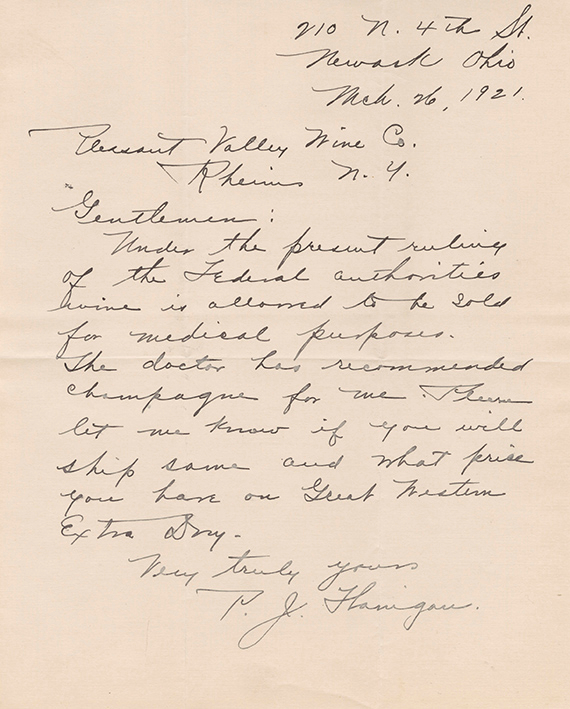 210 N. 4th St.
Newark Ohio
Mch. 26, 1921.
Pleasant Valley Wine Co.
Rheims N.Y.
Gentlemen:
Under the present ruling
of the Federal authorities
wine is allowed to be sold
for medical purposes.
The doctor has recommended
champagne for me. Please
let me know if you will
ship same and what price
you have on Great Western
Extra Dry.
Very truly yours
P. J. Flanigan.